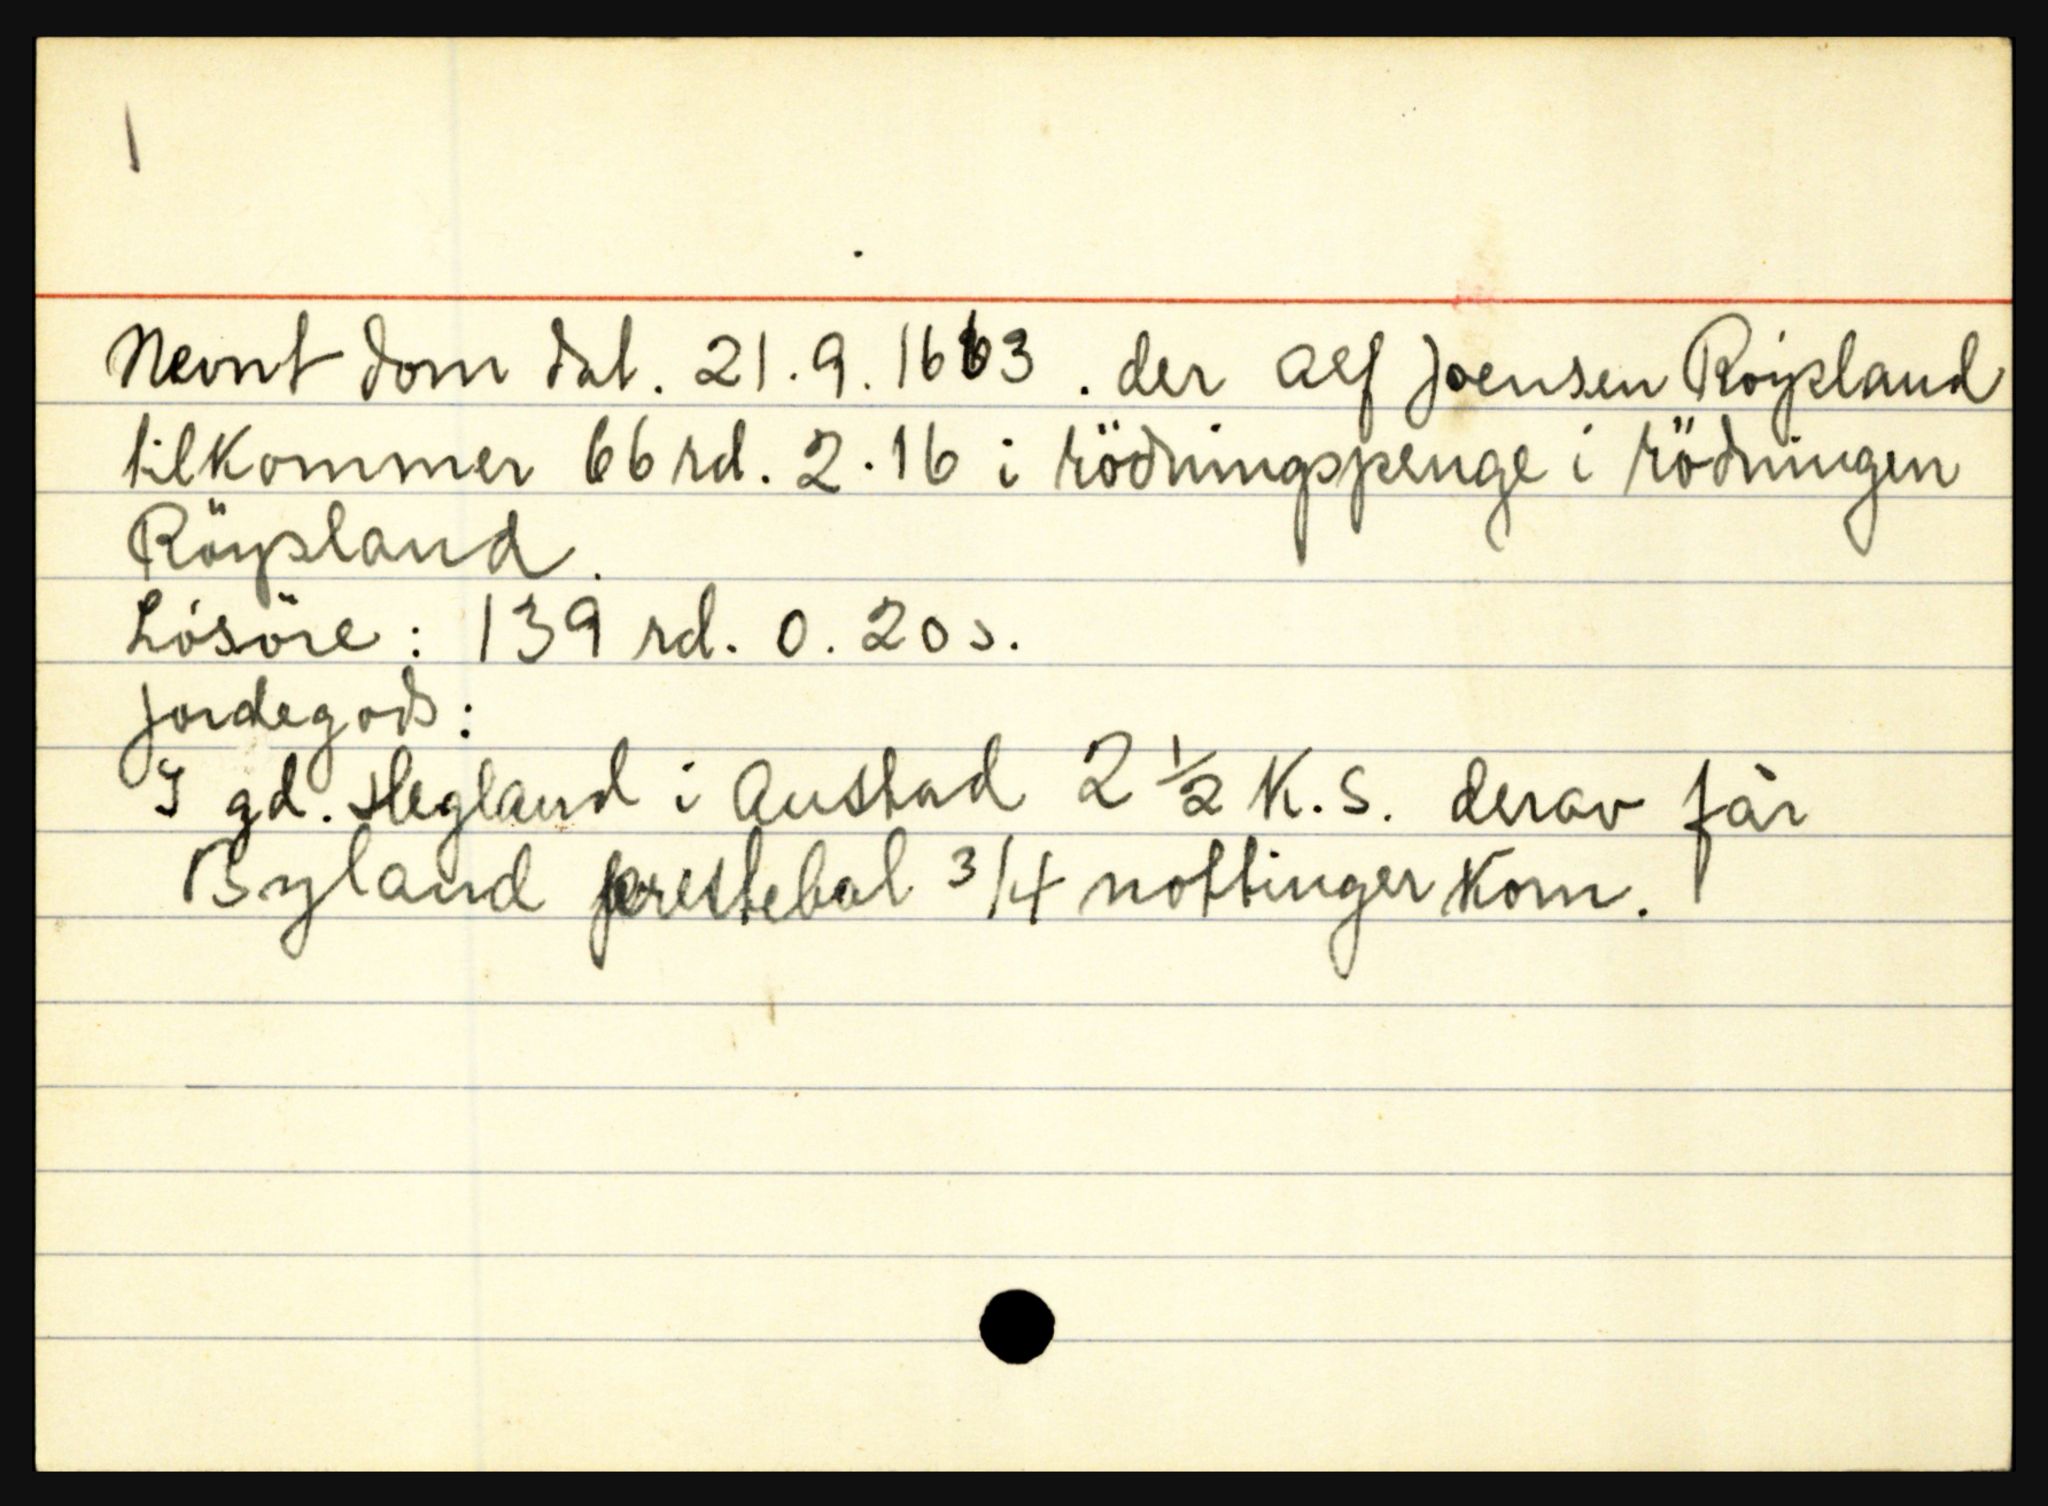 1
Nevnt dom dat. 21.9.1663. der Alf Joensen Röysland
tilkommer 66 rd. 2.16 i rödningspenge i rödningen
Röysland.
Lösöre: 139 rd. 0. 20 s.
Jordegods:
I gd. Hegland i Austad 2 1/2 K.S. derav får
Bygland prestebol 3/4 nottinger korn.